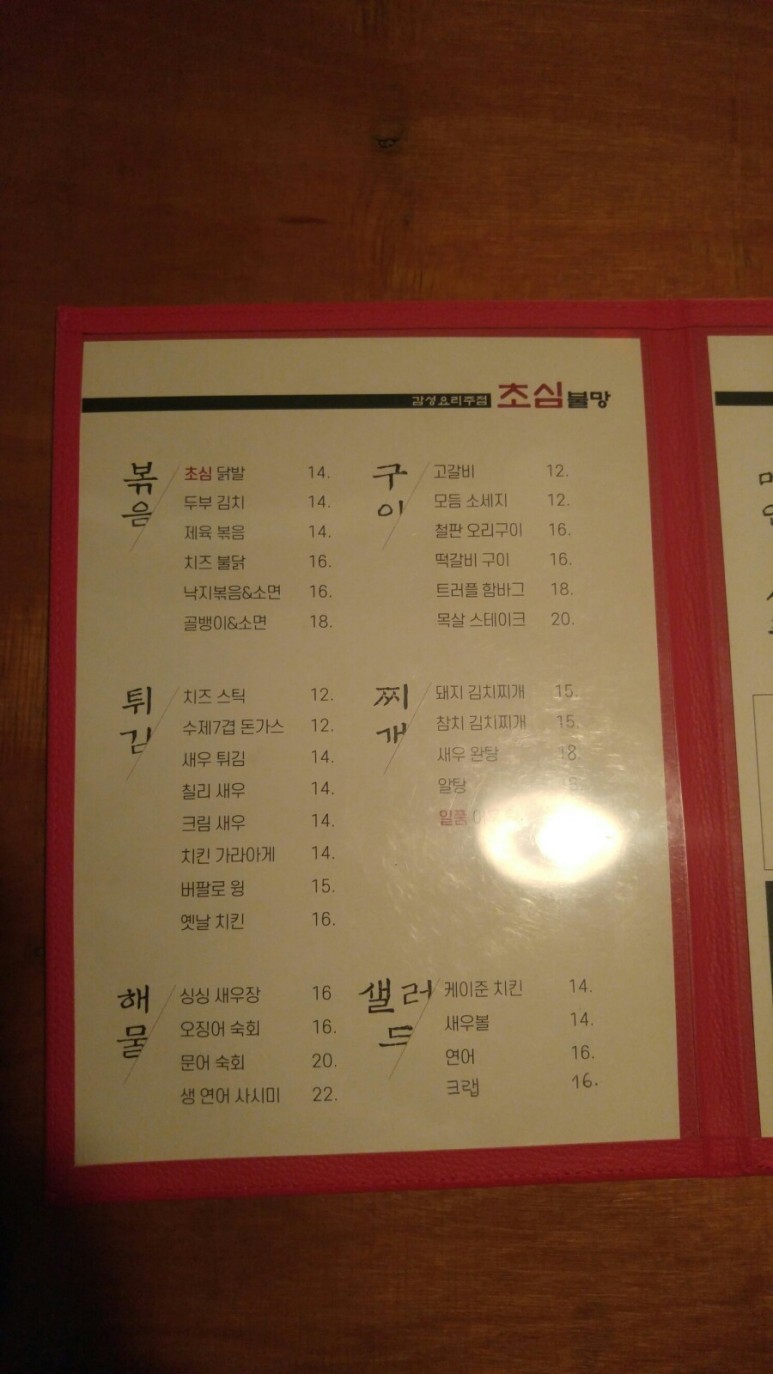 감성요리주점 초심불망
볶음
초심 닭발 14.
두부 김치 14.
제육 볶음 14.
치즈 불닭 16.
낙지볶음&소면 16.
골뱅이&소면 18.
구이
고갈비 12.
모듬 소세지 12.
철판 오리구이 16.
떡갈비 구이 16.
트러플 함바그 18.
목살 스테이크 20.
튀김
치즈 스틱 12.
수제7겹 돈가스 12.
새우 튀김 14.
칠리 새우 14.
크림 새우 14.
치킨 가라아게 14.
버팔로 윙 15.
옛날 치킨 16.
찌개
돼지 김치찌개 15.
참치 김치찌개 15.
새우 완탕 18.
알탕
일품
해물
싱싱 새우장 16
오징어 숙회 16.
문어 숙회 20.
생 연어 사시미 22.
샐러드
케이준 치킨 14.
새우볼 14.
연어 16.
크랩 16.